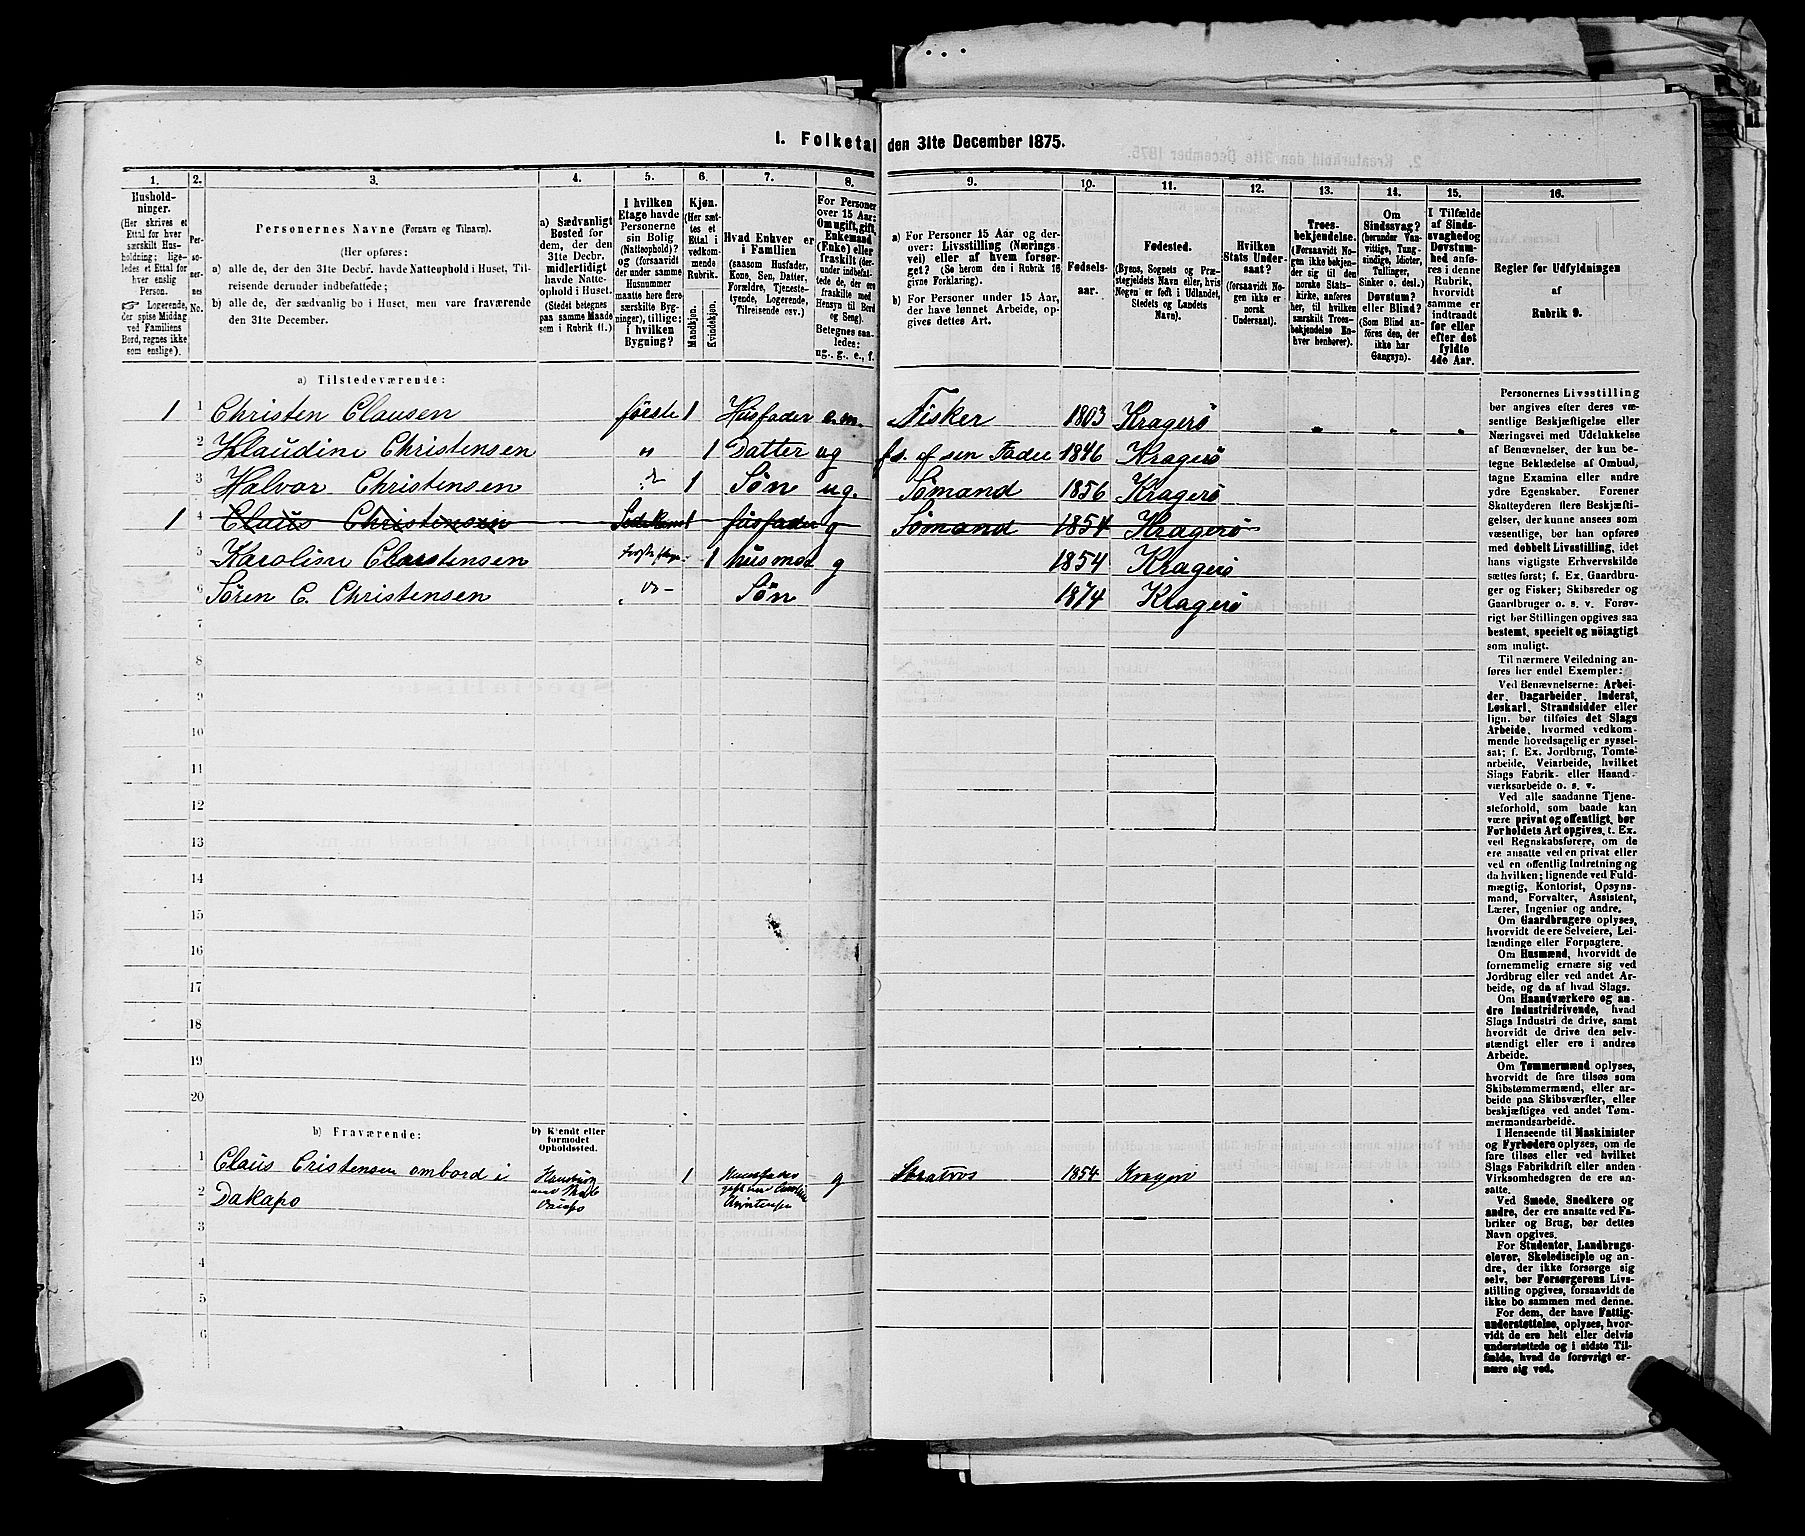 1. Folketal den 31te December 1875.
1.
Husholdninger.
(Her skrives et
Ettal for hver
særskilt Husholdning;
ligeledes et Ettal for
hver enslig
Person.
☞ Logerende,
der spise Middag
ved Familiens
Bord, regnes ikke
som enslige).
2.
Personernes
No.
3.
Personernes Navne (Fornavn og Tilnavn).
(Her opføres:
a) alle de, der den 31te Decbr. havde Natteophold i Huset, Tilreisende derunder indbefattede;
b) alle de, der sædvanlig bo i Huset, men vare fraværende
den 31te December.
4.
a) Sædvanligt
Bosted for
dem, der den
31te Decbr.
midlertidigt
havde Natteophold
i Huset.
(Stedet betegnes
paa samme Maade
som i Rubrik 11.)
5.
I hvilken
Etage havde
Personerne
sin Bolig
(Natteophold)?
og (forsaavidt
der under samme
Husnummer
maatte høre flere
særskilte Bygninger),
tillige:
i hvilken
Bygning?
6.
Kjøn.
(Her sættes
et
Ettal i
vedkommende
Rubrik.
Mandkjøn.
Kvindekjøn.
7.
Hvad Enhver er
i Familien
(saasom Husfader,
Kone, Søn, Datter,
Forældre, Tjenestetyende,
Logerende,
Tilreisende osv.)
8.
For Personer
over 15 Aar:
Om ugift, gift,
Enkemand
(Enke) eller
fraskilt
Betegnes saaledes:
ug., g., e., f.
9.
a) For Personer 15 Aar og derover:
Livsstilling (Næringsvei)
eller af hvem forsørget?
(Se herom den i Rubrik 16
givne Forklaring).
b) For Personer under 15 Aar,
der have lønnet Arbeide, opgives
dettes Art.
10.
Fødselsaar.
11.
Fødested.
(Byens, Sognets og Præstegjeldets
Navn eller, hvis
Nogen er født i Udlandet,
Stedets og Landets
Navn).
12.
Hvilken
Stats Undersaat?
(forsaavidt Nogen
ikke er
norsk
Undersaat).
13.
Troesbekjendelse.
(Forsaavidt Nogen
ikke bekjender
sig til den
norske Statskirke,
anføres
her, til hvilken
særskilt Troesbekjendelse
Enhver
henhører).
14.
Om
Sindssvag?
(herunder Vanvittige,
Tungsindige,
Idioter,
Tullinger,
Sinker o. desl.)
Døvstum?
eller Blind?
(Som Blind anføres
den, der
ikke har
Gangsyn).
15.
I Tilfælde
af Sindssvaghed
og
Døvstumhed
anføres
i denne
Rubrik,
hvorvidt
samme er
indtraadt
før eller
efter det
fyldte
4de Aar.
16.
Regler for Udfyldningen
af
Rubrik 9.
a) Tilstedeværende:
1 1 Christen Clausen første 1 Husfader e.m. Fisker 1803 Kragerø
2 Klaudine Christensen " 1 Datter ug fs. af sen Fader 1846 Kragerø
3 Halvor Christensen 1 Søn ug. Sømand 1856 Kragerø
1 4 Claus Christensen 1 fusfader g Sømand 1854 Kragerø
5 Karoline Christensen 1 husmoder g 1854 Kragerø
6 Søren C. Christensen Søn 1874 Kragerø
7
8
9
10
11
12
13
14
15
16
17
18
19
20
b) Fraværende:
b) Kjendt eller
formodet
Opholdssted.
1 Claus Cristensen ombord i 1 g 1854 Kragerø
2 Dakapo
3
4
5
6
Personernes Livsstilling
bør angives efter deres væsentlige
Beskjæftigelse eller
Næringsvei med Udelukkelse
af Benævnelser, der kun betegne
Beklædelse af Ombud,
tagne Examina eller andre
ydre Egenskaber. Forener
Skatteyderen flere Beskjæftigelser,
der kunne ansees som
væsentlige, bør han opføres
med dobbelt Livsstilling, idet
hans vigtigste Erhvervskilde
sættes først; f. Ex. Gaardbruger
og Fisker; Skibsreder og
Gaardbruger o. s. v. Forøvrigt
bør Stillingen opgives saa
bestemt, specielt og nöiagtigt
som muligt.
Til nærmere Veiledning anføres
her endel Exempler:
Ved Benævnelserne: Arbeider,
Dagarbeider, Inderst,
Løskarl, Strandsidder eller
lign. bør tilføies det Slags
Arbeide, hvormed vedkommende
hovedsagelig er sysselsat;
f. Ex. Jordbrug, Tomtearbeide,
Veiarbeide, hvilket
Slags Fabrik- eller Haandværksarbeide
o. s. v.
Ved alle saadanne Tjenesteforhold,
som baade kan
være privat og offentligt, bør
Forholdets Art opgives, t. Ex.
ved Regnskabsførere, om de
ere ansatte ved en privat eller
ved en offentlig Indretning og
da hvilken; lignende ved Fuldmægtig,
Kontorist, Opsynsmand,
Forvalter, Assistent,
Lærer, Ingeniør og andre.
Om Gaardbrugere oplyses,
hvorvidt de ere Selveiere, Leilændinge
eller Forpagtere.
Om Husmænd, hvorvidt de
fornemmelig ernære sig ved
Jordbrug eller ved andet Arbeide,
og da af hvad Slags.
Om Haandværkere og andre
Industridrivende, hvad
Slags Industri de drive, samt
hvorvidt de drive den selvstændigt
eller ere i andres
Arbeide.
Om Tømmermænd oplyses,
hvorvidt de fare tilsøs som
Skibstømmermænd, eller arbeide
paa Skibsværfter, eller
beskjæftiges ved andet Tømmermandsarbeide.
I Henseende til Maskinister
og Fyrbødere oplyses, om de
fare tilsøs eller ved hvilket
Slags Fabrikdrift eller anden
Virksomhedsgren de ere ansatte.
Ved Smede, Snedkere og
andre, der ere ansatte ved Fabriker
og Brug, bør dettes
Navn opgives.
For Studenter, Landbrugselever,
Skoledisciple og andre,
der ikke forsørge sig
selv, bør Forsørgerens Livsstilling
opgives, forsaavidt de
ikke bo sammen med denne.
For dem, der have Fattigunderstøttelse,
oplyses, hvorvidt
de ere helt eller delvis
understøttede og i sidste Tilfælde,
hvad de forøvrigt ernære
sig ved.